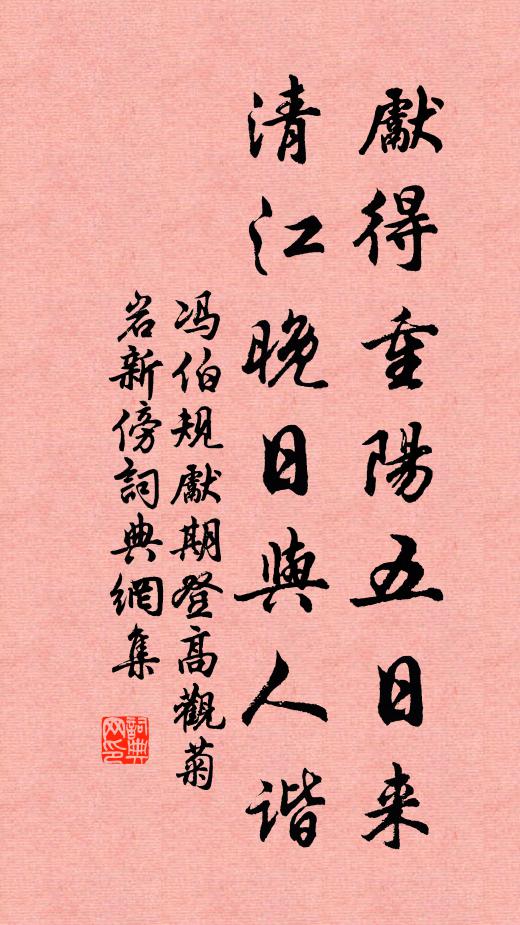 獻得重陽五日来
清江晚日與人谐
冯伯規獻期登高觀菊
岩新傍詞典網集
詞典网印